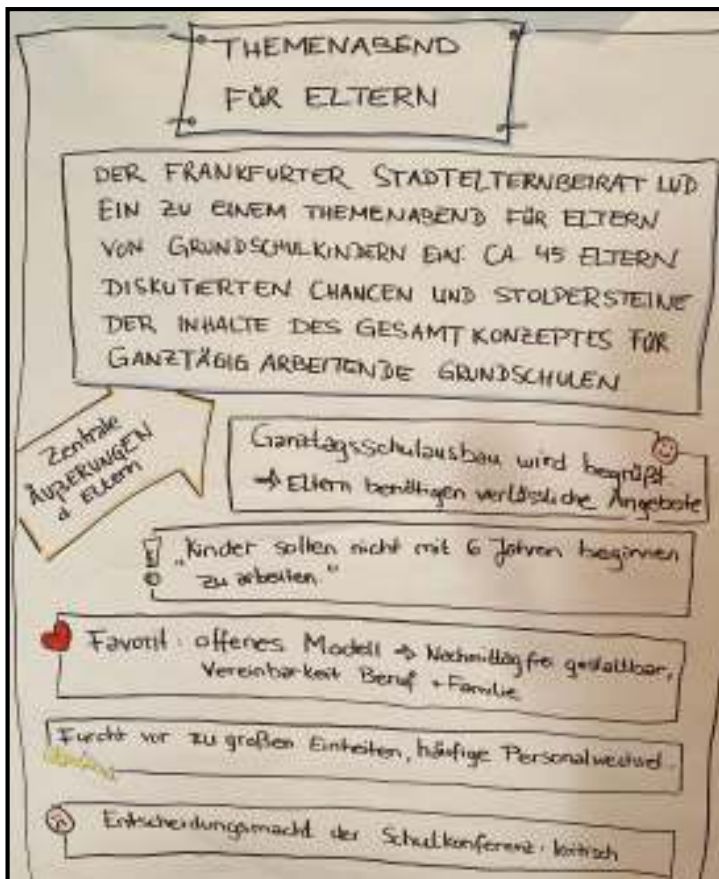 THEMENABEND
FÜR ELTERN
DER FRANKFURTER STADTELTERNBEIRAT LUD
EIN ZU EINEM THEMENABEND FÜR ELTERN
VON GRUNDSCHULKINDERN EIN. CA. 45 ELTERN
DISKUTIERTEN CHANCEN UND STOLPERSTEINE
DER INHALTE DES GESAMTKONZEPTES FÜR
GANZTÄGIG ARBEITENDE GRUNDSCHULEN
Zentrale
ÄUẞERUNGEN
d. Eltern
Ganztagsschulausbau wird begrüßt
→ Eltern benötigen verlässliche Angebote
"Kinder sollen nicht mit 6 Jahren beginnen
zu arbeiten."
Favorit: offenes Modell → Nachmittag frei gestaltbar,
Vereinbarkeit Beruf + Familie
Furcht vor zu großen Einheiten, häufige Personalwechsel
Entscheidungsmacht der Schulkonferenz: kritisch